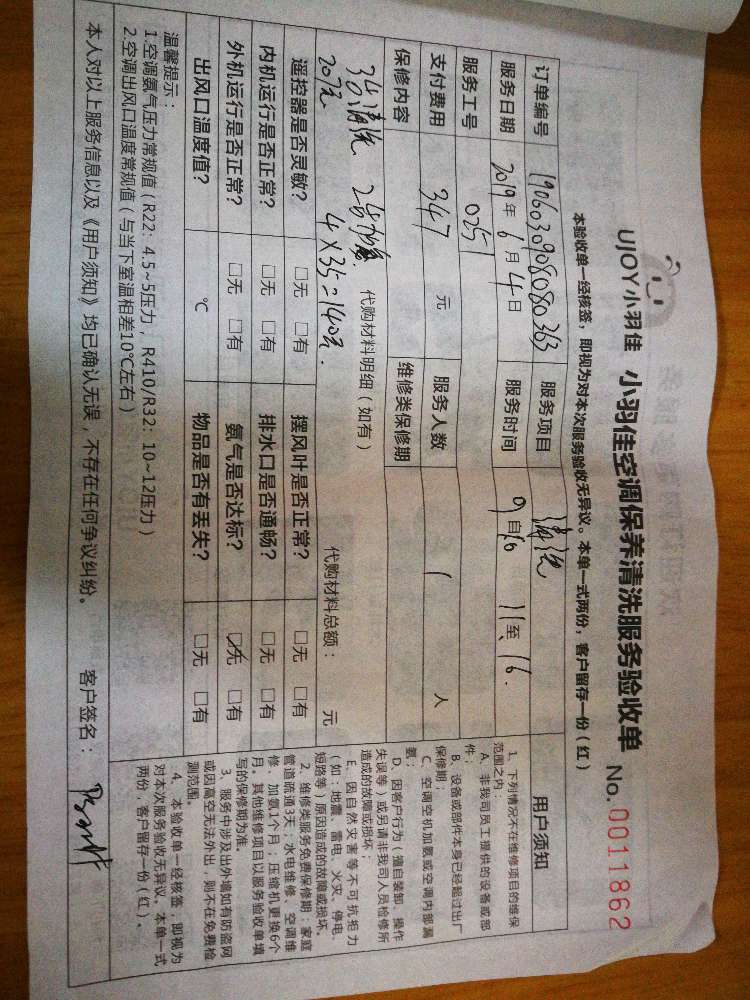 UJOY小羽佳 小羽佳空调保养清洗服务验收单 No.0011862
本验收单一经核签，即视为对本次服务验收无异议。本单一式两份，客户留存一份（红）
订单编号 1906030908080363 服务项目 清洗
服务日期 2019年6月4日 服务时间 9自16 11至16.
服务工号 0251
支付费用 347 元 服务人数 1 人
保修内容 维修类保修期
代购材料明细（如有）
3台清洗 2台加氨
207元 4×35=140元. 代购材料总额： 元
遥控器是否灵敏？ □无 □有 摆风叶是否正常？ □无 □有
内机运行是否正常？ □无 □有 排水口是否通畅？ □无 □有
外机运行是否正常？ □无 □有 氨气是否达标？ ☑无 □有
出风口温度值？ ℃ 物品是否有丢失？ □无 □有
温馨提示：
1.空调氨气压力常规值（R22：4.5~5压力，R410/R32：10~12压力）
2.空调出风口温度常规值（与当下室温相差10℃左右）
本人对以上服务信息以及《用户须知》均已确认无误，不存在任何争议纠纷。 客户签名：
用户须知
1、下列情况不在维修项目的维保
范围之内：
A、非我司员工提供的设备或部
件；
B、设备或部件本身已经超过出厂
保修期；
C、空调空机加氨或空调内部漏
氨；
D、因客户行为（擅自装卸、操作
失误等）或另请非我司人员检修所
造成的故障或损坏；
E、因自然灾害等不可抗拒力
（如：地震、雷电、火灾、停电、
短路等）原因造成的故障或损坏。
2、维修类服务免费保修期：家庭
管道疏通3天；水电维修、空调维
修、加氨1个月；压缩机更换6个
月。其他维修项目以服务验收单填
写的保修期为准。
3、服务中涉及出外墙如有防盗网
或因高空无法外出，则不在免费检
测范围。
4、本验收单一经核签，即视为
对本次服务验收无异议。本单一式
两份，客户留存一份（红）。